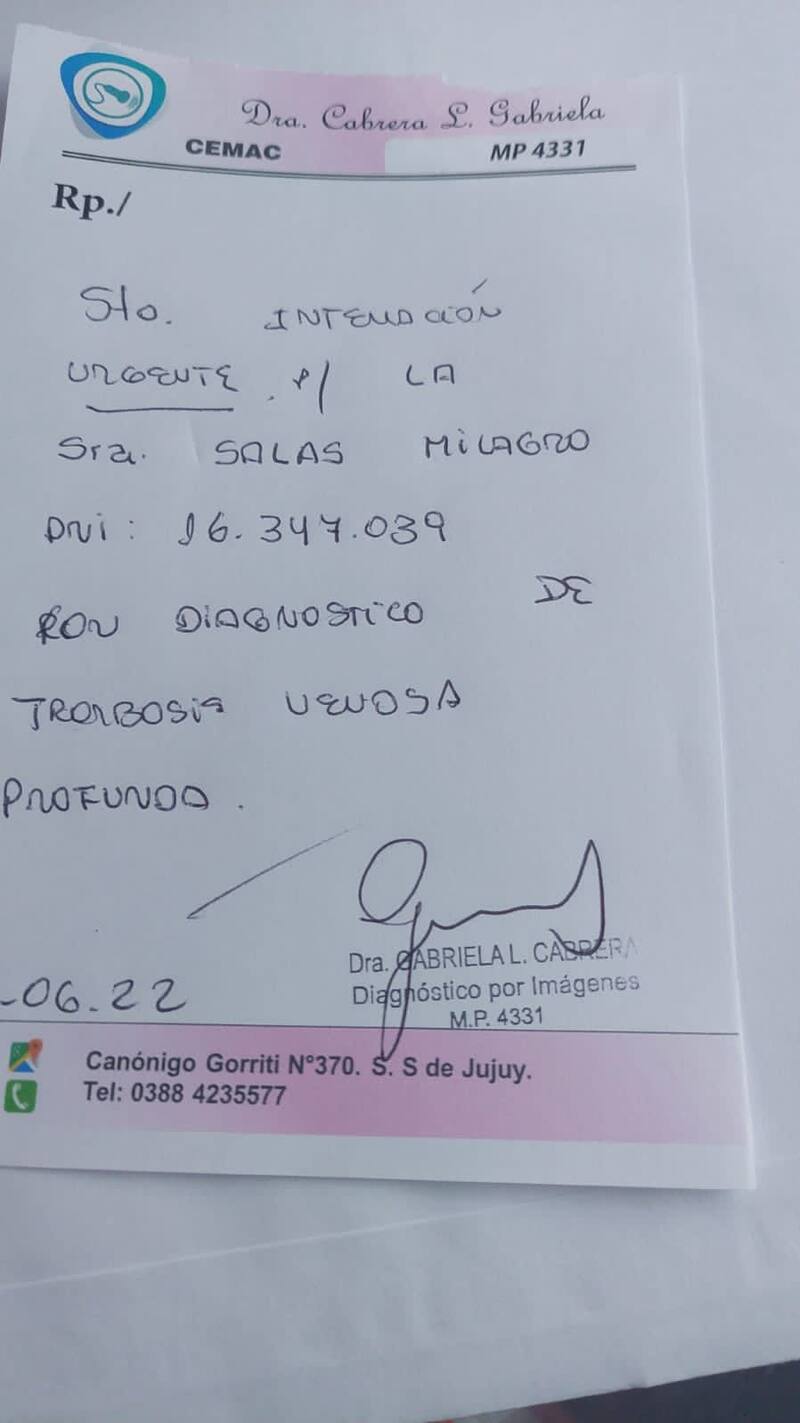 Dra. Cabrera L. Gabriela
CEMAC MP 4331
Rp./
Sto. INTERNACIÓN
URGENTE. p/ LA
Sra. SALAS MILAGRO
DNI: 16.347.039
CON DIAGNOSTICO DE
TROMBOSIS VENOSA
PROFUNDA.
-06.22
Dra. GABRIELA L. CABRERA
Diagnóstico por Imágenes
M.P. 4331
Canónigo Gorriti N°370. S. S de Jujuy.
Tel: 0388 4235577